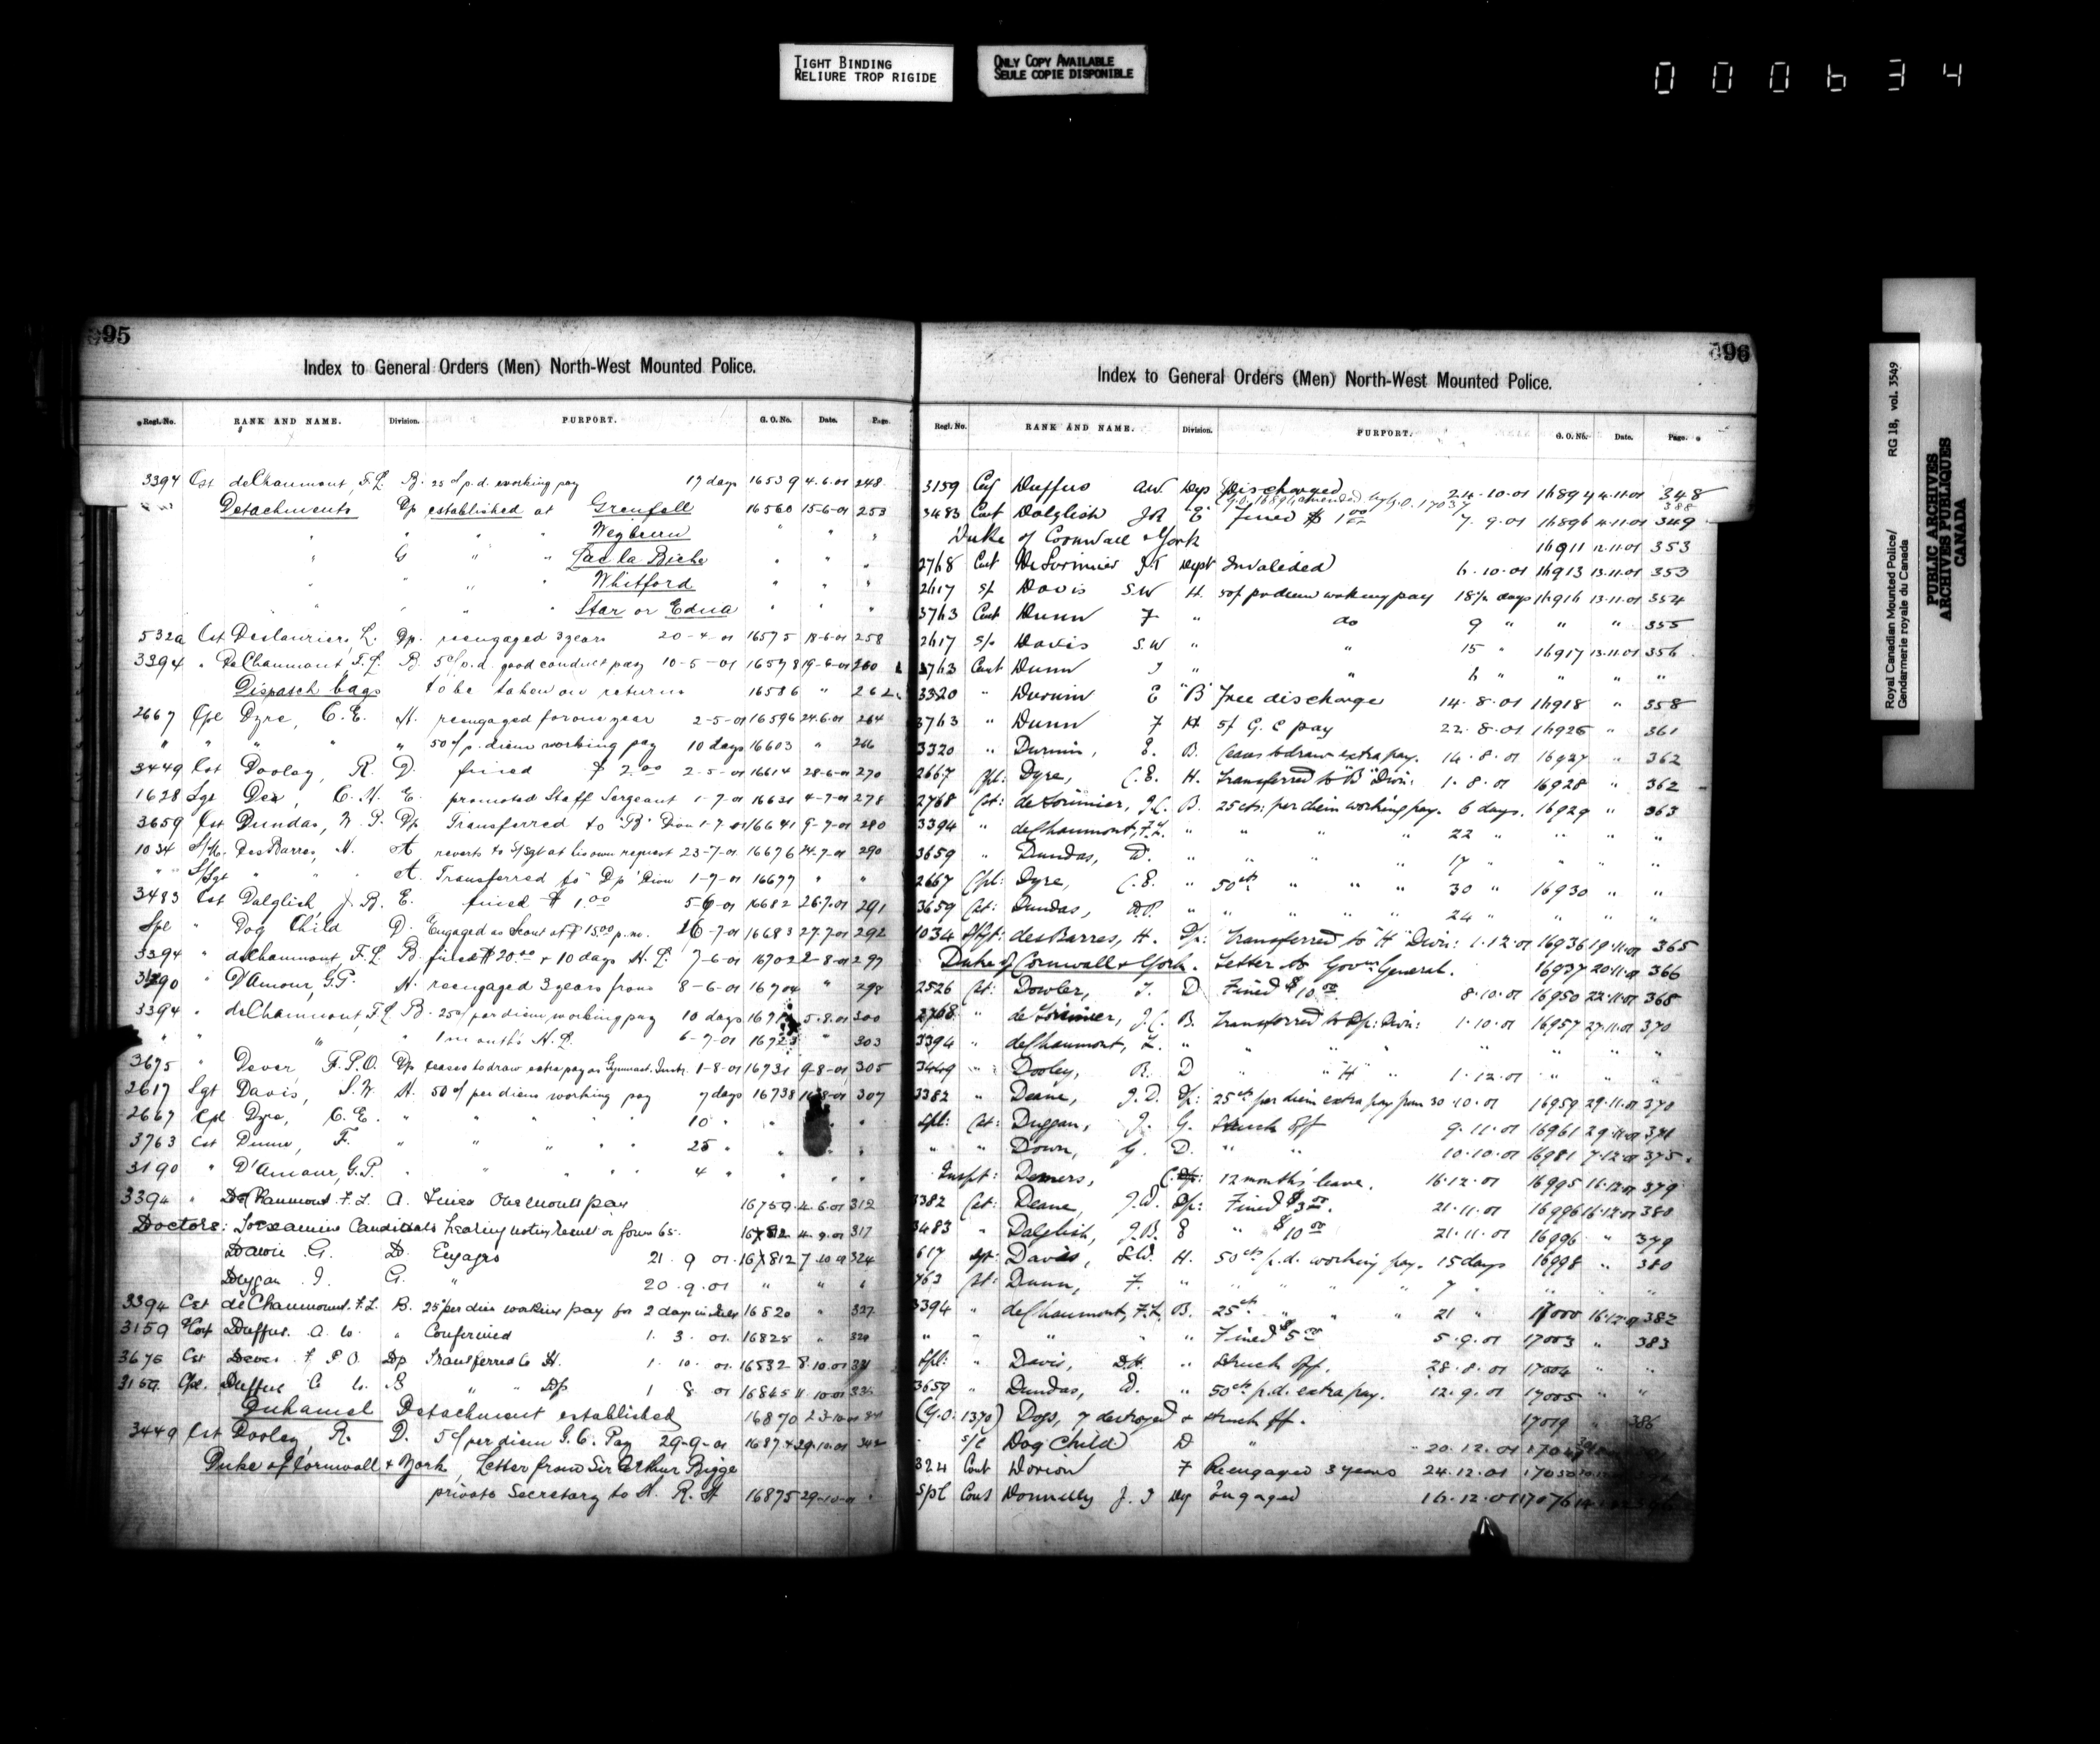 TIGHT BINDING
RELIURE TROP RIGIDE
ONLY COPY AVAILABLE
SEULE COPIE DISPONIBLE
000634
95
Index to General Orders (Men) North-West Mounted Police.
Regt. No. RANK AND NAME. Division. PURPORT. G. O. No. Date. Page.
3394 Cst deChaumont, F.L. B. 25 c/ p.d. working pay 17 days 16539 4.6.01 248
Detachments Dp established at Grenfell 16560 15-6-01 253
" " " Weyburn " " "
" G " " Lac la Biche " " "
" " " " Whitford " " "
" " " " Star or Edna " " "
532a Cst Deslauriers, L. Dp. reengaged 3 years 20-4-01 16575 18-6-01 258
3394 " DeChaumont, F.L. B. 5c/ p.d. good conduct pay 10-5-01 16578 19-6-01 260
Dispatch bags to be taken on returns 16586 " 262
2667 Cpl Dyre, C.E. H. reengaged for one year 2-5-01 16596 24.6.01 264
" " " " " 50 c/ p. diem working pay 10 days 16603 " 266
3449 Cst Dooley, R. D. fined $ 2.00 2-5-01 16614 28-6-01 270
1628 Sgt Dee, C.H. E. promoted Staff Sergeant 1-7-01 16631 4-7-01 278
3659 Cst Dundas, W.P. Dp Transferred to "B" Divn 1-7-01 16641 9-7-01 280
1034 S/M. DesBarres, H. A reverts to S/Sgt at his own request 23-7-01 16676 24-7-01 290
" S/Sgt " " A. Transferred to "Dp" Divn 1-7-01 16677 " "
3483 Cst Dalglish J.B. E. fined $ 1.00 5-6-01 16682 26.7.01 291
Spl " Dog Child D. Engaged as Scout at $ 15.00 p.m. 16-7-01 16683 27.7.01 292
3394 " deChaumont, F.L. B. fined $ 20.00 + 10 days H.L. 7-6-01 16702 2-8-01 297
3190 " D'Amour, G.P. H. reengaged 3 years from 8-6-01 16704 " 298
3394 " deChaumont, F.L. B. 25c/ per diem working pay 10 days 5.8.01 300
" " " " 1 month's H.L. 6-7-01 16723 303
3675 " Dever, F.P.O. Dp ceases to draw extra pay as Gymnast. Instr. 1-8-01 16731 9-8-01 305
2617 Sgt Davis, S.W. H. 50 c/ per diem working pay 7 days 16738 307
2667 Cpl Dyre, C.E. " " " " 10 " " "
3763 Cst Dunn, F. " " " " 25 " " "
3190 " D'Amour, G.P. " " " " 4 " " " "
3394 " DeChaumont F.L. A. Fined One month pay 16759 4.6.01 312
Doctors: To examine Candidates hearing noting result on form 65. 4.9.01 317
Davis G. D. Engages 21.9.01 16812 324
Duggan J. G. " 20.9.01 " " "
3394 Cst deChaumont F.L. B. 25 c/ per diem working pay for 2 days in July 16820 " 327
3159 Duffus. A. W. " Confirmed 1.3.01. 16825 " 329
3675 Cst Dever F P O. Dp Transferred to H. 1.10.01. 16832 8.10.01 331
3159 Cpl. Duffus A W. B " " Dp 1 8 01 16845 11.10.01 336
Duhamel Detachment established 16870 23.10.01
3449 Cst Dooley, R. D. 5 c/ per diem G.C. Pay 29-9-01 16874 29.10.01 342
Duke of Cornwall & York, Letter from Sir Arthur Bigge
private Secretary to H. R. H 16875 29-10-01 "
96
Index to General Orders (Men) North-West Mounted Police.
Regt. No. RANK AND NAME. Division. PURPORT. G. O. No. Date. Page.
3159 Cpl Duffus A.W. Dep Discharged 24.10.01 16894 4.11.01 348
G.O. 16894 amended by G.O. 17037 388
3483 Cont Dalglish J.B E fined $ 1.00 7.9.01 16896 4.11.01 349
Duke of Cornwall & York 16911 12.11.01 353
2768 Cont DeLorimier Dept Invalided 6.10.01 16913 13.11.01 353
2617 Davis S.W H. 50c/ per diem working pay 18 1/2 days 16916 13.11.01 354
3763 Cont Dunn F " do 9 " " " 355
2617 Davis S.W " " 15 " 16917 13.11.01 356
3763 Cont Dunn " " 6 " " " "
3320 " Durnin E "B" Free discharge 14.8.01 16918 " 358
3763 " Dunn F H 5c/ G.C pay 22.8.01 16925 " 361
3320 " Durnin, E. B. Ceases to draw extra pay. 14.8.01 16927 " 362
2667 Cpl: Dyre, C.E. H. Transferred to "B" Divn: 1.8.01 16928 " 362
2768 Cst: deLorimier, J.C. B. 25 cts: per diem working pay. 6 days. 16929 " 363
3394 " deChaumont, F.L. " " " " 22 " " " "
3659 " Dundas, W. " " " " 17 " " " "
2667 Cpl: Dyre, C.E. " 50cts " " " 30 " 16930 " "
3659 Cst: Dundas, W.P. " " " " " 24 " " " "
1034 S/Sgt: desBarres, H. Dp: Transferred to "H" Divn: 1.12.01 16936 19.11.01 365
Duke of Cornwall & York. Letter to Govnr General. 16937 20.11.01 366
2526 Cst: Dowler, J. D Fined $10.00. 8.10.01 16950 22.11.01 368
2768 " deLorimier, J.C. B. Transferred to Dp: Divn: 1.10.01 16957 27.11.01 370
3394 " deChaumont, L. " " " " " " " "
3449 " Dooley, R. D " "H" " 1.12.01 " " "
3382 " Deane, J.D. Dp: 25cts per diem extra pay from 30.10.01 16959 29.11.01 370
Spl: Cst: Duggan, J. G. Struck off 9.11.01 16961 29.11.01 371
" " Down, G. D. " " 10.10.01 16981 7.12.01 375
Inspt: Demers, C. 12 month's leave. 16.12.01 16995 16.12.01 379
3382 Cst: Deane, J.D. Dp: Fined $3.00. 21.11.01 16996 16.12.01 380
3483 " Dalglish, J.B. E " $10.00 21.11.01 16996 " 379
617 Sgt: Davis, S.W. H. 50cts p.d. working pay. 15 days 16998 " 380
763 Cst: Dunn, F. " " " " " 7 " " " "
3394 " deChaumont, F.L. B. 25cts " " " 21 " 17000 16.12.01 382
" " " " Fined $5.00 5.9.01 17003 " 383
Spl: " Davis, D.H. " Struck off. 28.8.01 17004 " "
3659 " Dundas, W. " 50cts p.d. extra pay. 12.9.01 17005 " "
(G.O. 1370) Dogs, 7 destroyed & struck off. 17019 " 386
s/c Dog Child D " 20.12.01
324 Cont Dorion F Reengaged 3 years 24.12.01 17050
Spl Cons Donnelly J. J Dep Engaged 16.12.01 17076
Royal Canadian Mounted Police/ RG 18, vol. 3549
Gendarmerie royale du Canada
PUBLIC ARCHIVES
ARCHIVES PUBLIQUES
CANADA